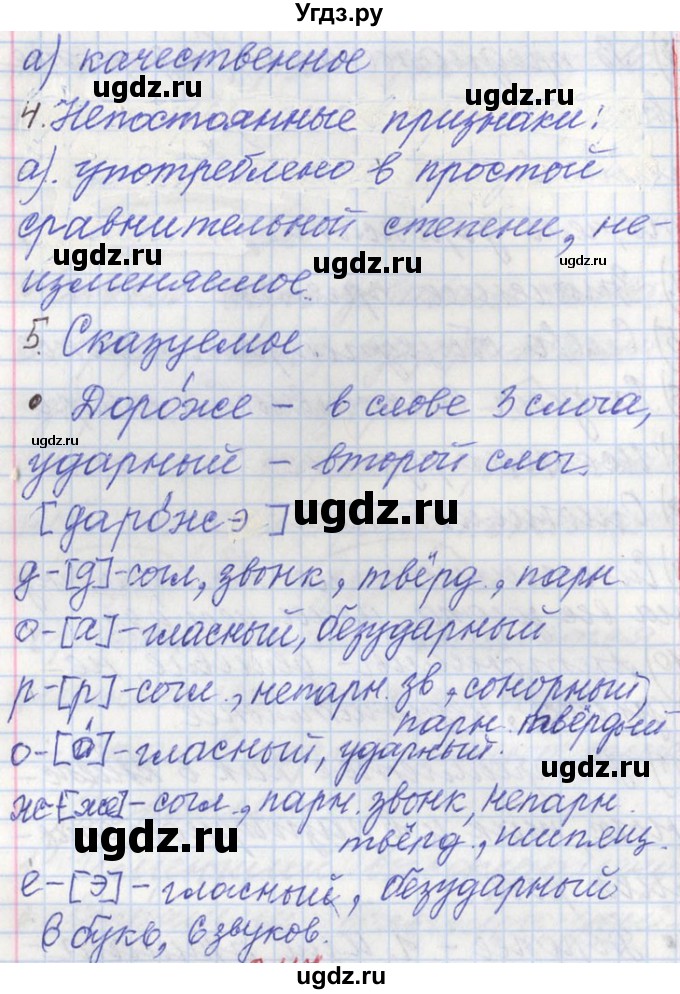 Угдз.ру
а) качественное
4. Непостоянные признаки:
а). употреблено в простой
сравнительной степени, не-
изменяемое.
5. Сказуемое
• Доро́же – в слове 3 слога,
ударный – второй слог.
[даро́жэ]
д-[д]-согл, звонк, твёрд., парн
о-[а]-гласный, безударный
р-[р]-согл., непарн. зв, сонорный,
парн. твёрдый
о-[о́]-гласный, ударный.
ж-[ж]-согл., парн. звонк, непарн.
твёрд., шипящ.
е-[э]-гласный, безударный
6 букв, 6 звуков.
ugdz.ru
ugdz.ru
ugdz.ru
ugdz.ru
ugdz.ru
ugdz.ru
ugdz.ru
ugdz.ru
ugdz.ru
ugdz.ru
ugdz.ru